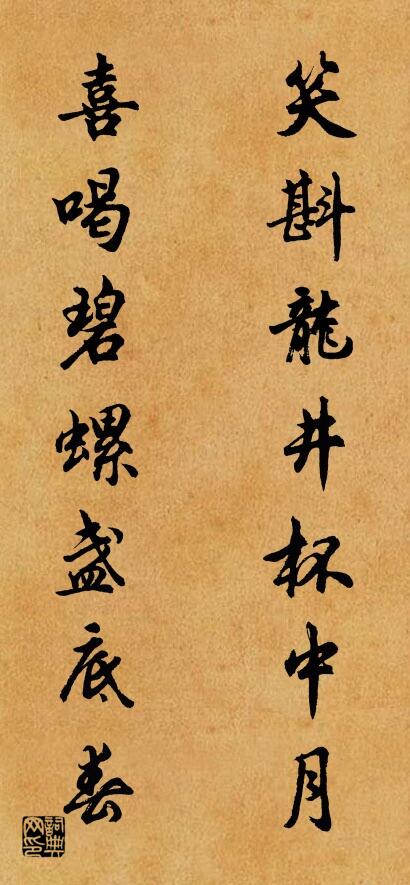 笑斟龍井杯中月
喜喝碧螺盏底春
詞典网印